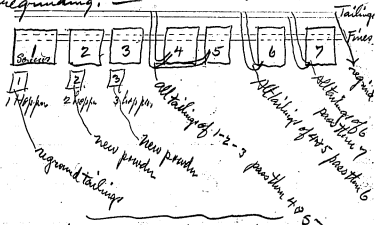 regrinding. —
Tailings
Fines
1 2 3 4 5 6 7
Screens
1 2 3
1 Hopper 2 hoppr 3 hoppr
reground tailings
new powder
new powder
all tailings of 1-2-3 pass thru 4 & 5-
All tailings of 4 & 5 pass thru 6
All tailings of 6 pass thru 7
regrind